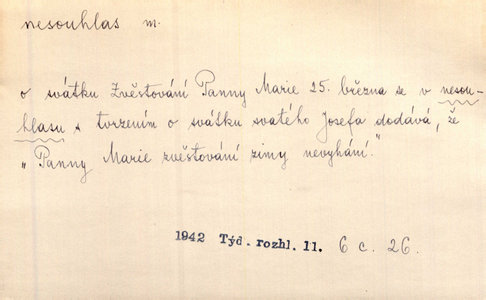 nesouhlas m.
o svátku Zvěstování Panny Marie 25. března se v nesou-
hlasu s tvrzením o svátku svatého Josefa dodává, že
„Panny Marie zvěstování zimy nevyhání."
1942 Týd. rozhl. 11. 6 c. 26.